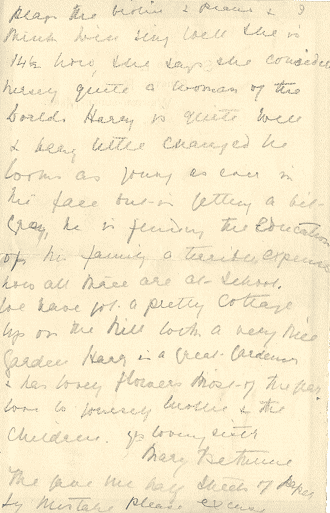 plays the violin & piano & I
think will sing well she is
14½ now, she says she considers
herself quite a woman of the
World. Harry is quite well
& very little changed he
looks as young as ever in
his face but is getting a bit
Gray, he is finding the Education
of his family a terrible expense
now all three are at School.
We have got a pretty Cottage
Up on the Hill with a very nice
Garden Harry is a Great Gardener
& has lovely flowers most of the year
love to yourself Mollie & the
Children. yr loving sister
Mary Bethune
me half Sheets of paper
by mistake please excuse